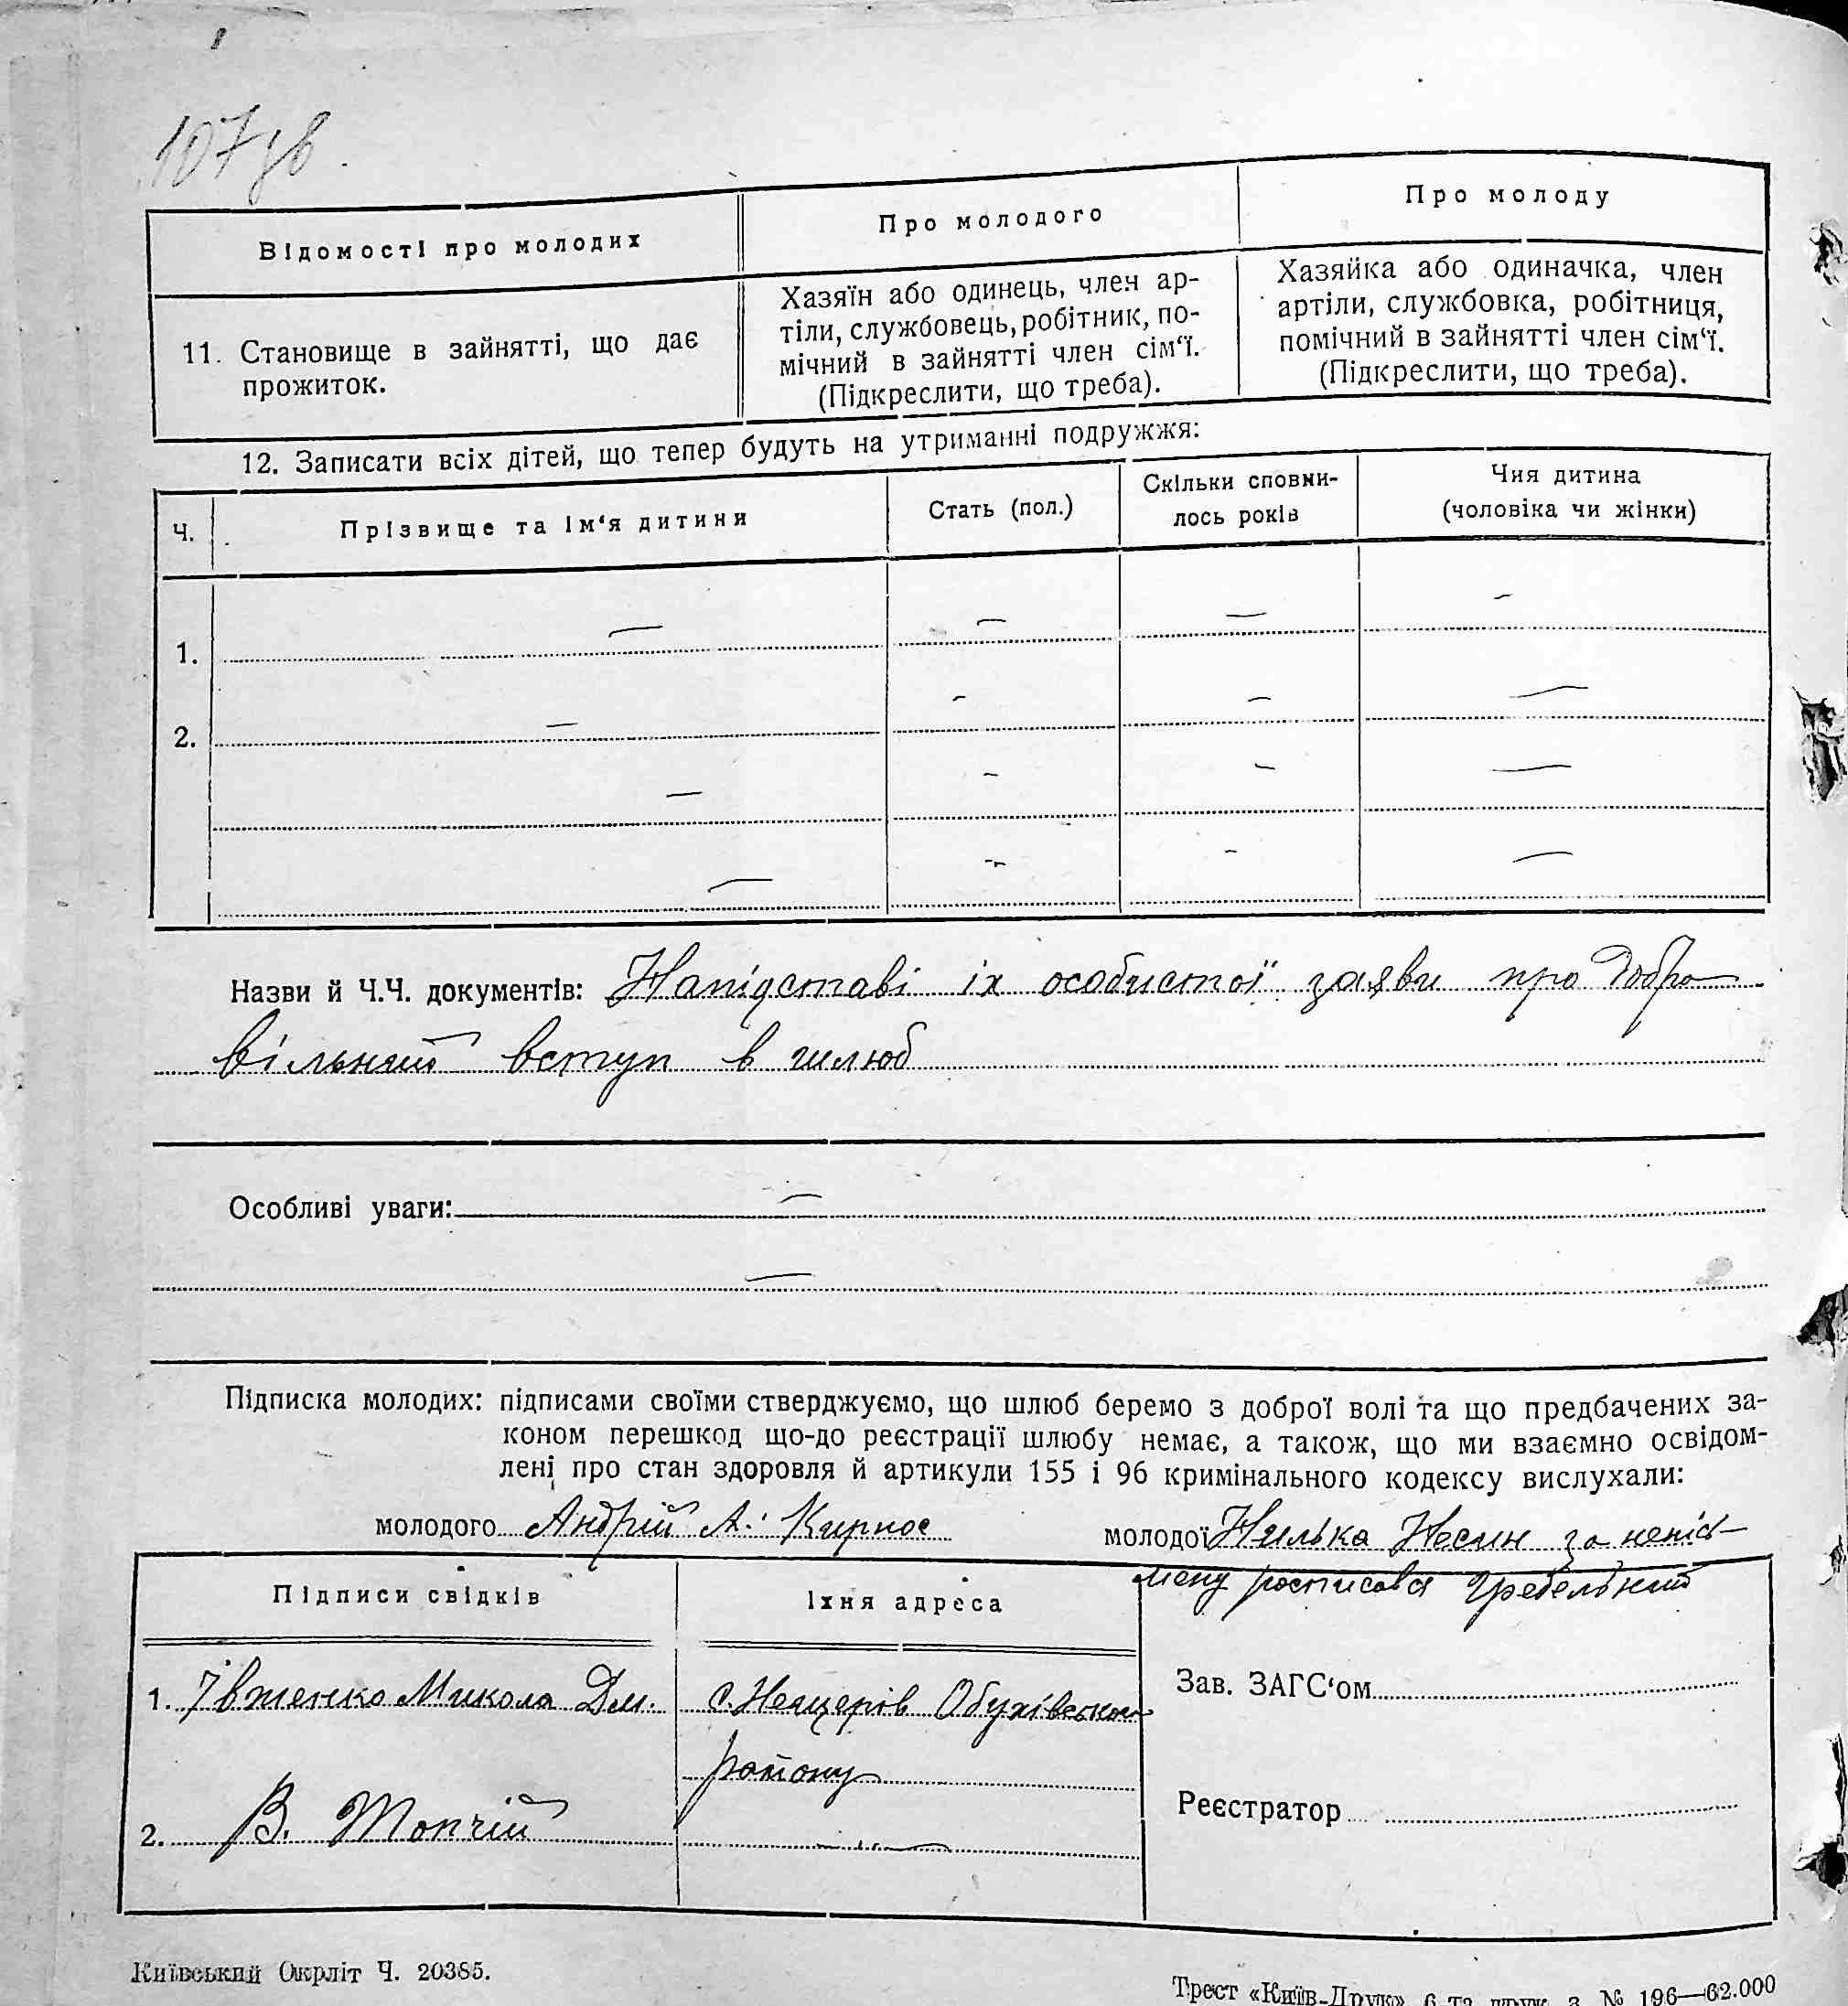 107зв.
Відомості про молодих
Про молодого
Про молоду
11. Становище в зайнятті, що дає
прожиток.
Хазяїн або одинець, член ар-
тіли, службовець, робітник, по-
мічний в зайнятті член сім‘ї.
(Підкреслити, що треба).
Хазяйка або одиначка, член
артіли, службовка, робітниця,
помічний в зайнятті член сім‘ї.
(Підкреслити, що треба).
12. Записати всіх дітей, що тепер будуть на утриманні подружжя:
Ч.
Прізвище та ім‘я дитини
Стать (пол.)
Скільки сповни-
лось років
Чия дитина
(чоловіка чи жінки)
1. — — — —
2. — — — —
— — — —
— — — —
Назви й Ч.Ч. документів: Напідставі іх особистої заяви про добро
вільний вступ в шлюб
Особливі уваги: —
—
Підписка молодих: підписами своїми стверджуємо, що шлюб беремо з доброї волі та що предбачених за-
коном перешкод що-до реєстрації шлюбу немає, а також, що ми взаємно освідом-
лені про стан здоровля й артикули 155 і 96 кримінального кодексу вислухали:
молодого Андрій А. Кирнос
молодої Нилька Несин за непісь-
мену росписався Гребельний
Підписи свідків
Їхня адреса
1. Івженко Микола Дм.
с. Нещерів Обухівськог
району
2. В. Топчій
— „ —
Зав. ЗАГС‘ом
Реєстратор
Київський Окрліт Ч. 20385.
Трест «Київ-Друк» 6 та друк. з. № 196—62.000